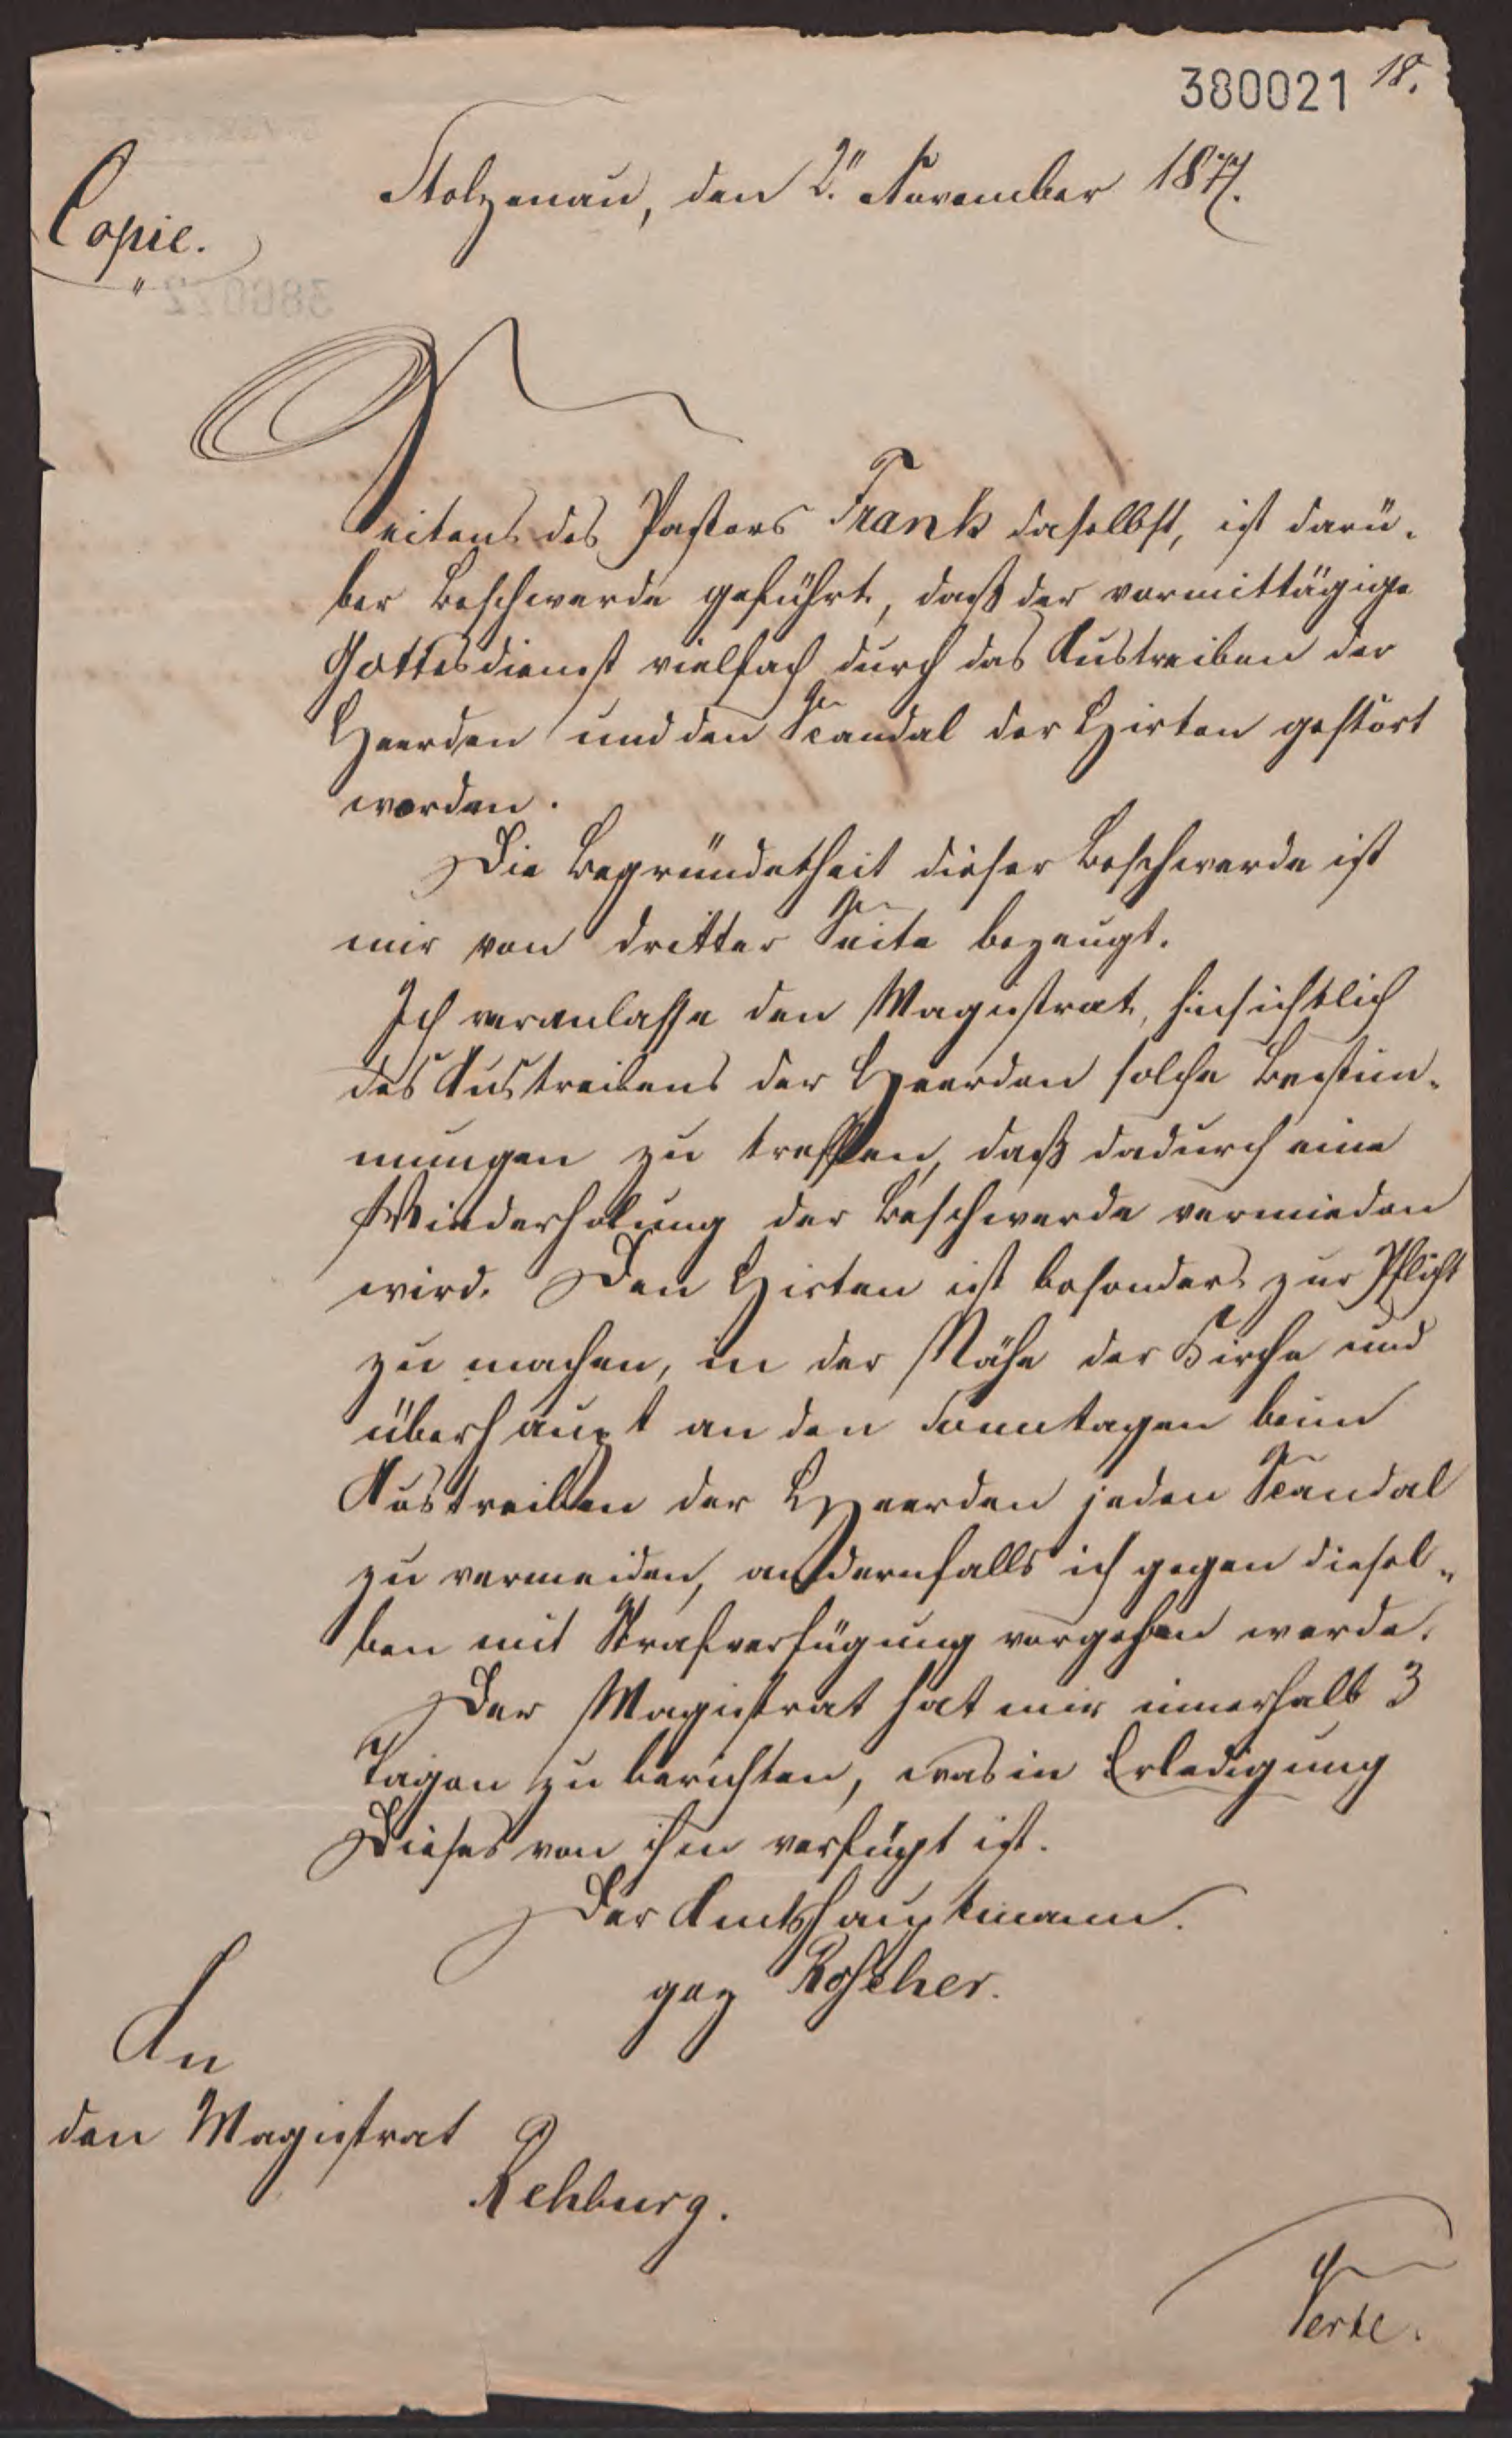 380021 18.
Stolzenau, den 2. November 1877.
Copie.
Seitens des Pastors Frank daselbst, ist darü-
ber Beschwerde geführt, daß der vormittägige
Gottesdienst vielfach durch das Austreiben der
Heerden und den Scandal der Hirten gestört
worden.
Die Begründetheit dieser Beschwerde ist
mir von dritter Seite bezeugt.
Ich veranlasse den Magistrat, hinsichtlich
des Austreibens der Heerden solche Bestim-
mungen zu treffen, daß dadurch eine
Wiederholung der Beschwerde vermieden
wird. Den Hirten ist besonders zur Pflicht
zu machen, in der Nähe der Kirche und
überhaupt an den Sonntagen beim
Austreiben der Heerden jeden Scandal
zu vermeiden, andernfalls ich gegen diesel-
ben mit Strafverfügung vorgehen werde.
Der Magistrat hat mir innerhalb 3
Tagen zu berichten, was in Erledigung
Dieses von ihm verfügt ist.
Der Amtshauptmann.
gez Roscher.
An
den Magistrat
Rehburg.